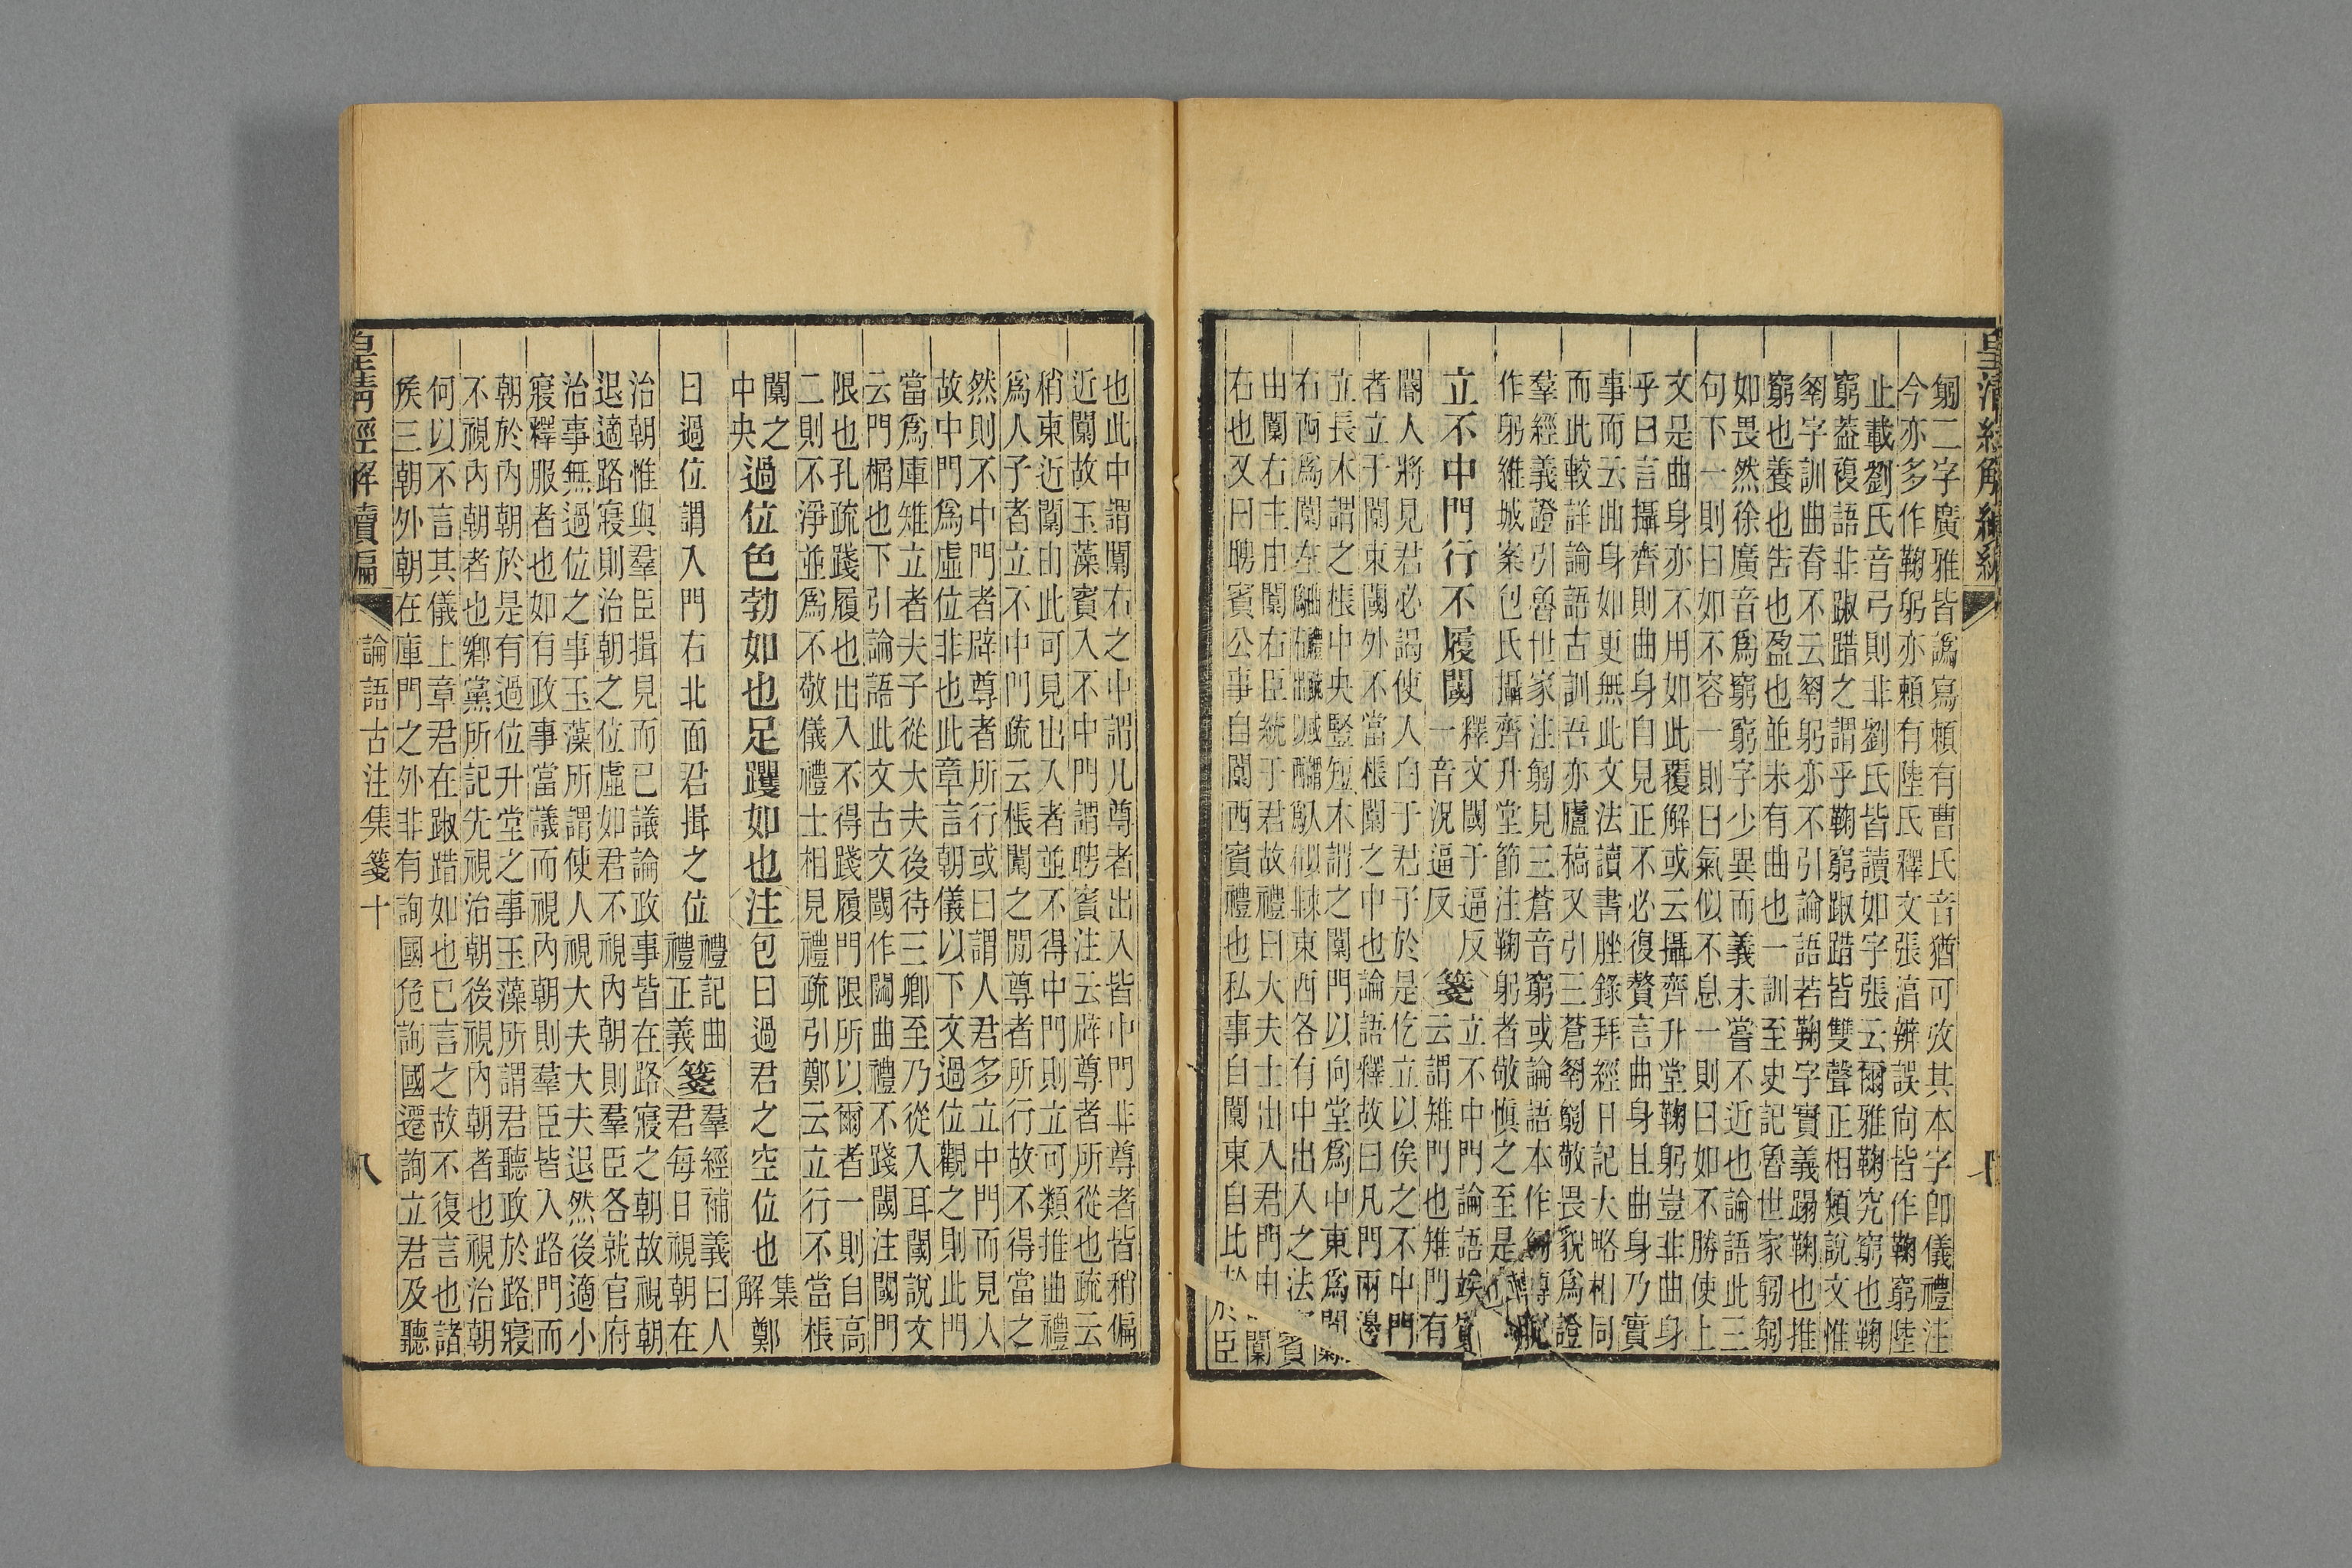 皇清經解續編
躬二字廣雅皆譌寫賴有曹氏音猶可攷其本字卽儀禮注
今亦多作鞠躬亦賴有陸氏釋文張淯辨誤尙皆作鞠窮陸
止載劉氏音弓則非劉氏皆讀如字張云爾雅鞠究窮也鞠
窮葢複語非踧踖之謂乎鞠窮踧踖皆雙聲正相類說文惟
匑字訓曲脊不云匑躬亦不引論語若鞠字實義蹋鞠也推
窮也養也告也盈也並未有曲也一訓至史記魯世家匑匑
如畏然徐廣音爲窮窮字少異而義未嘗不近也論語此三
句下一則曰如不容一則曰氣似不息一則曰如不勝使上
文是曲身亦不用如此覆解或云攝齊升堂鞠躬豈非曲身
乎曰言攝齊則曲身自見正不必復贅言曲身且曲身乃實
事而云曲身如更無此文法讀書脞錄拜經日記大略相同
而此較詳論語古訓吾亦廬稿又引三蒼匑匑敬畏貌爲證
羣經義證引魯世家注匑見三蒼音窮或論語本作
作躬維城案包氏攝齊升堂節注鞠躬者敬愼之至是
立不中門行不履閾
釋文閾于逼反
一音況逼反
箋
立不中門論語竢
云謂雉門也雉門有
闇人將見君必謁使人白于君子於是仡立以俟之不中門
者立于闑東閾外不當棖闑之中也論語釋故曰凡門兩邊
立長木謂之棖中央豎短木謂之闑門以向堂爲中東爲
右西爲闑左 東西各有中出入之法
由闑右主由闑右臣統于君故禮曰大夫士出入君門由闑
右也又曰聘賓公事自闑西賓禮也私事自闑東自比於臣
也此中謂闑右之中謂凡尊者出入皆中門非尊者皆稍偏
近闑故玉藻賓入不中門謂聘賓注云辟尊者所從也疏云
稍東近闑由此可見出入者並不得中門則立可類推曲禮
爲人子者立不中門疏云棖闑之閒尊者所行故不得當之
然則不中門者辟尊者所行或曰謂人君多立中門而見人
故中門爲虛位非也此章言朝儀以下文過位觀之則此門
當爲庫雉立者夫子從大夫後待三卿至乃從入耳閾說文
云門榍也下引論語此文古文閾作閮曲禮不踐閾注閾門
限也孔疏踐履也出入不得踐履門限所以爾者一則自高
二則不淨並爲不敬儀禮士相見禮疏引鄭云立行不當棖
闑之
中央
過位色勃如也足躩如也
注
包曰過君之空位也
集
解
鄭
曰過位謂入門右北面君揖之位
禮記曲
禮正義
箋
羣經補義曰人
君每日視朝在
治朝惟與羣臣揖見而已議論政事皆在路寢之朝故視朝
退適路寢則治朝之位虛如君不視內朝則羣臣各就官府
治事無過位之事玉藻所謂使人視大夫大夫退然後適小
寢釋服者也如有政事當議而視內朝則羣臣皆入路門而
朝於內朝於是有過位升堂之事玉藻所謂君聽政於路寢
不視內朝者也鄉黨所記先視治朝後視內朝者也視治朝
何以不言其儀上章君在踧踖如也已言之故不復言也諸
侯三朝外朝在庫門之外非有詢國危詢國遷詢立君及聽
皇清經解續編
論語古注集箋十
八